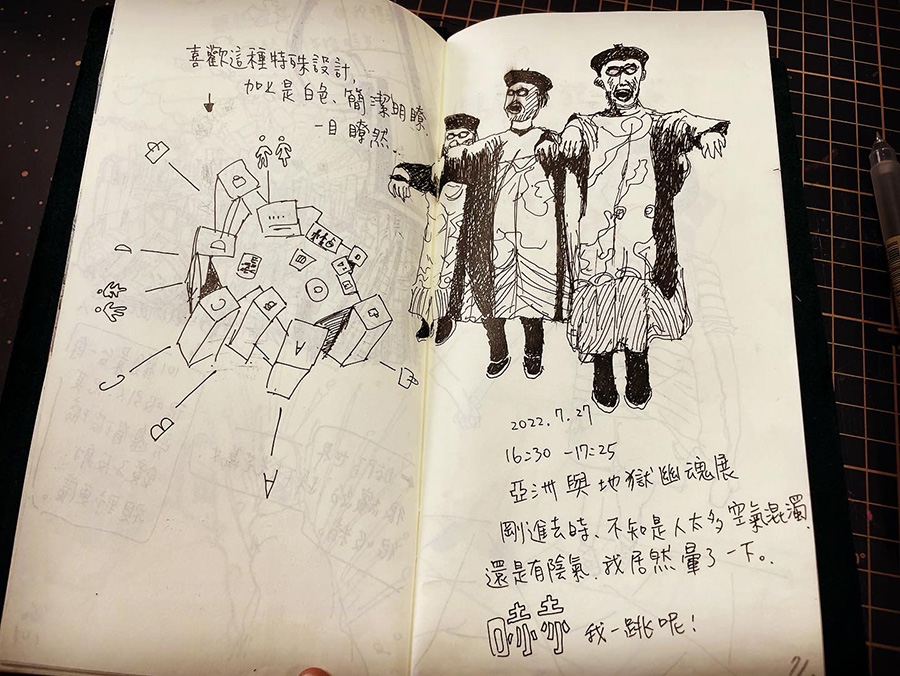 喜歡這種特殊設計,
加上是白色、簡潔明瞭,
一目瞭然
D
C
B
A
C
B
A
2022.7.27
16:30 -17:25
亞洲與地獄幽魂展
剛進去時、不知是人太多空氣混濁、
還是有陰氣,我居然暈了一下。
嚇我一跳呢!